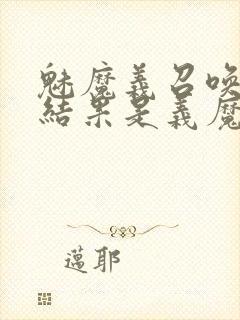 魅魔義召喚
結果是義魔
邁耶